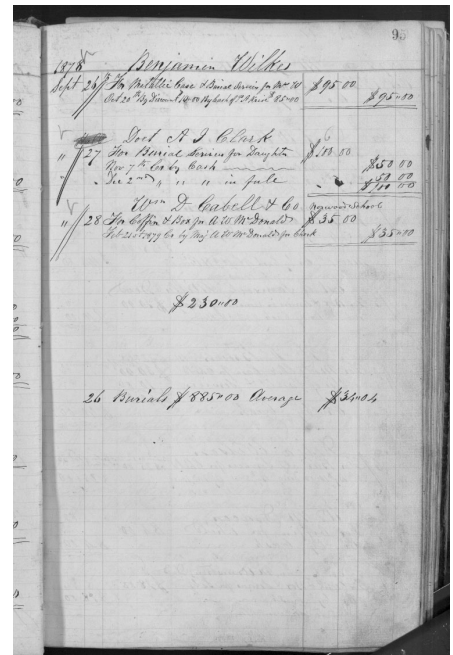 95
1878 Benjamin Wilkes
Sept 26th For Metallic Case & Burial Service for Mrs W $95 00
Oct 20th By Discount 10.00 By hack of 85"00 $95"00
Doct A J Clark
" 27 For Burial Services for Daughter $100 00
Nov 7th Cr by Cash $50 00
" Dec 2nd " " " in full " 50 00
$100 00
Wm D. Cabell & Co Norwood School
" 28 For Coffin & Box for A W McDonald $35 00
Feb 21st 1879 Cr by Maj A W McDonald for Check $35"00
$230"00
26 Burials $885"00 Average $34"04